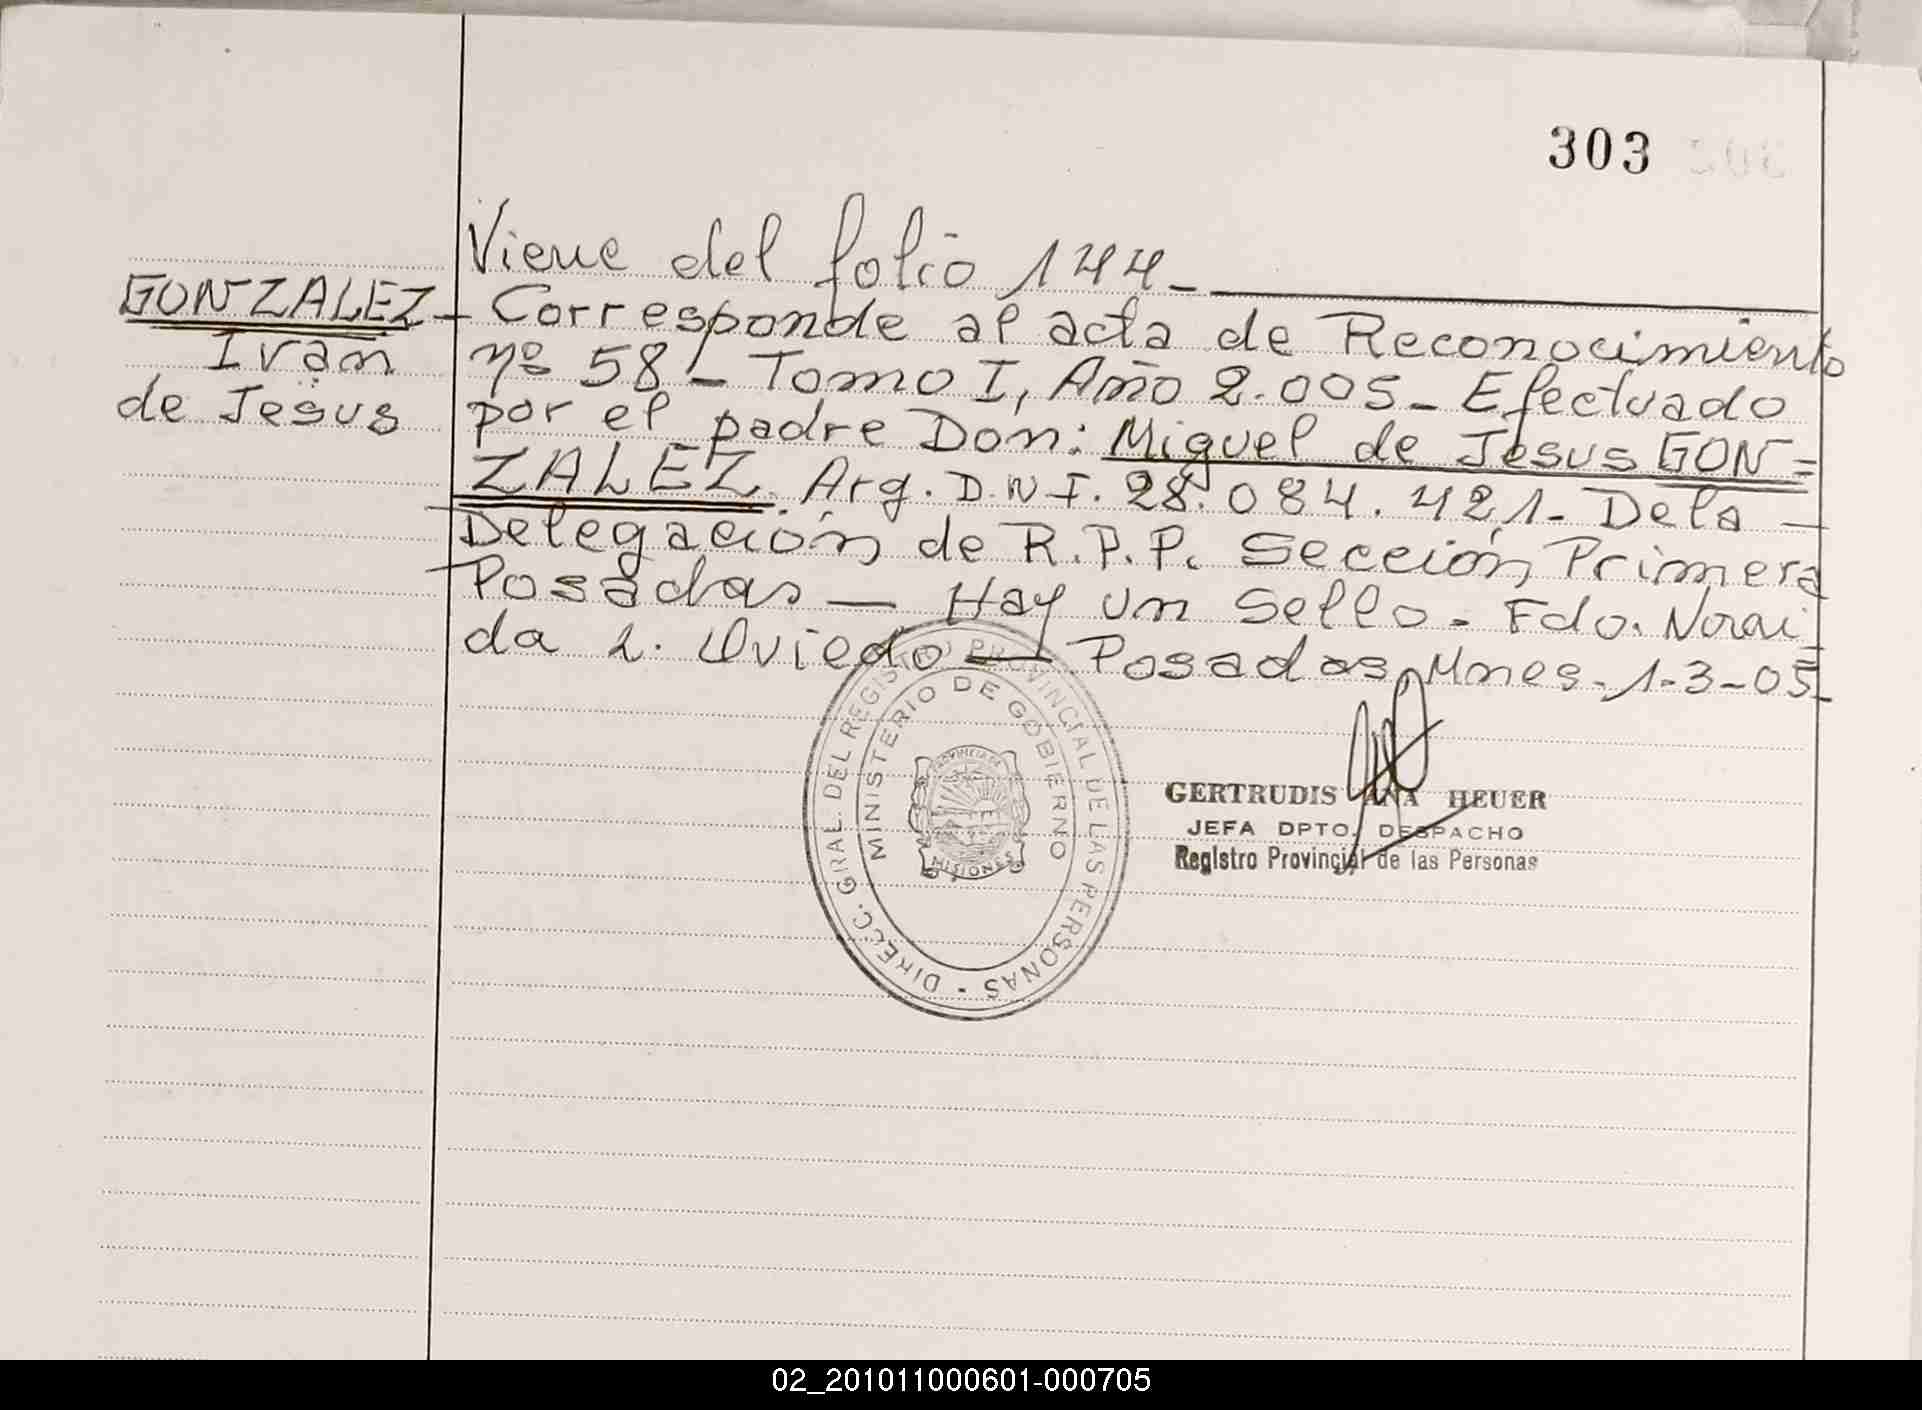 303
Viene del folio 144.-
GONZALEZ - Corresponde al acta de Reconocimiento
Ivan nº 58 - Tomo I, Año 2.005 - Efectuado
de Jesus por el padre Don: Miguel de Jesus GON=
ZALEZ. Arg. D.N.I. 28.084.421 - De la -
Delegación de R.P.P. Sección Primera
Posadas - Hay un Sello. Fdo. Norai
da L. Oviedo - Posadas, Mnes. 1-3-05-
DIRECC. GRAL. DEL REGISTRO PROVINCIAL DE LAS PERSONAS -
MINISTERIO DE GOBIERNO
PROVINCIA DE
MISIONES
GERTRUDIS ANA HEUER
JEFA DPTO. DESPACHO
Registro Provincial de las Personas
02_201011000601-000705